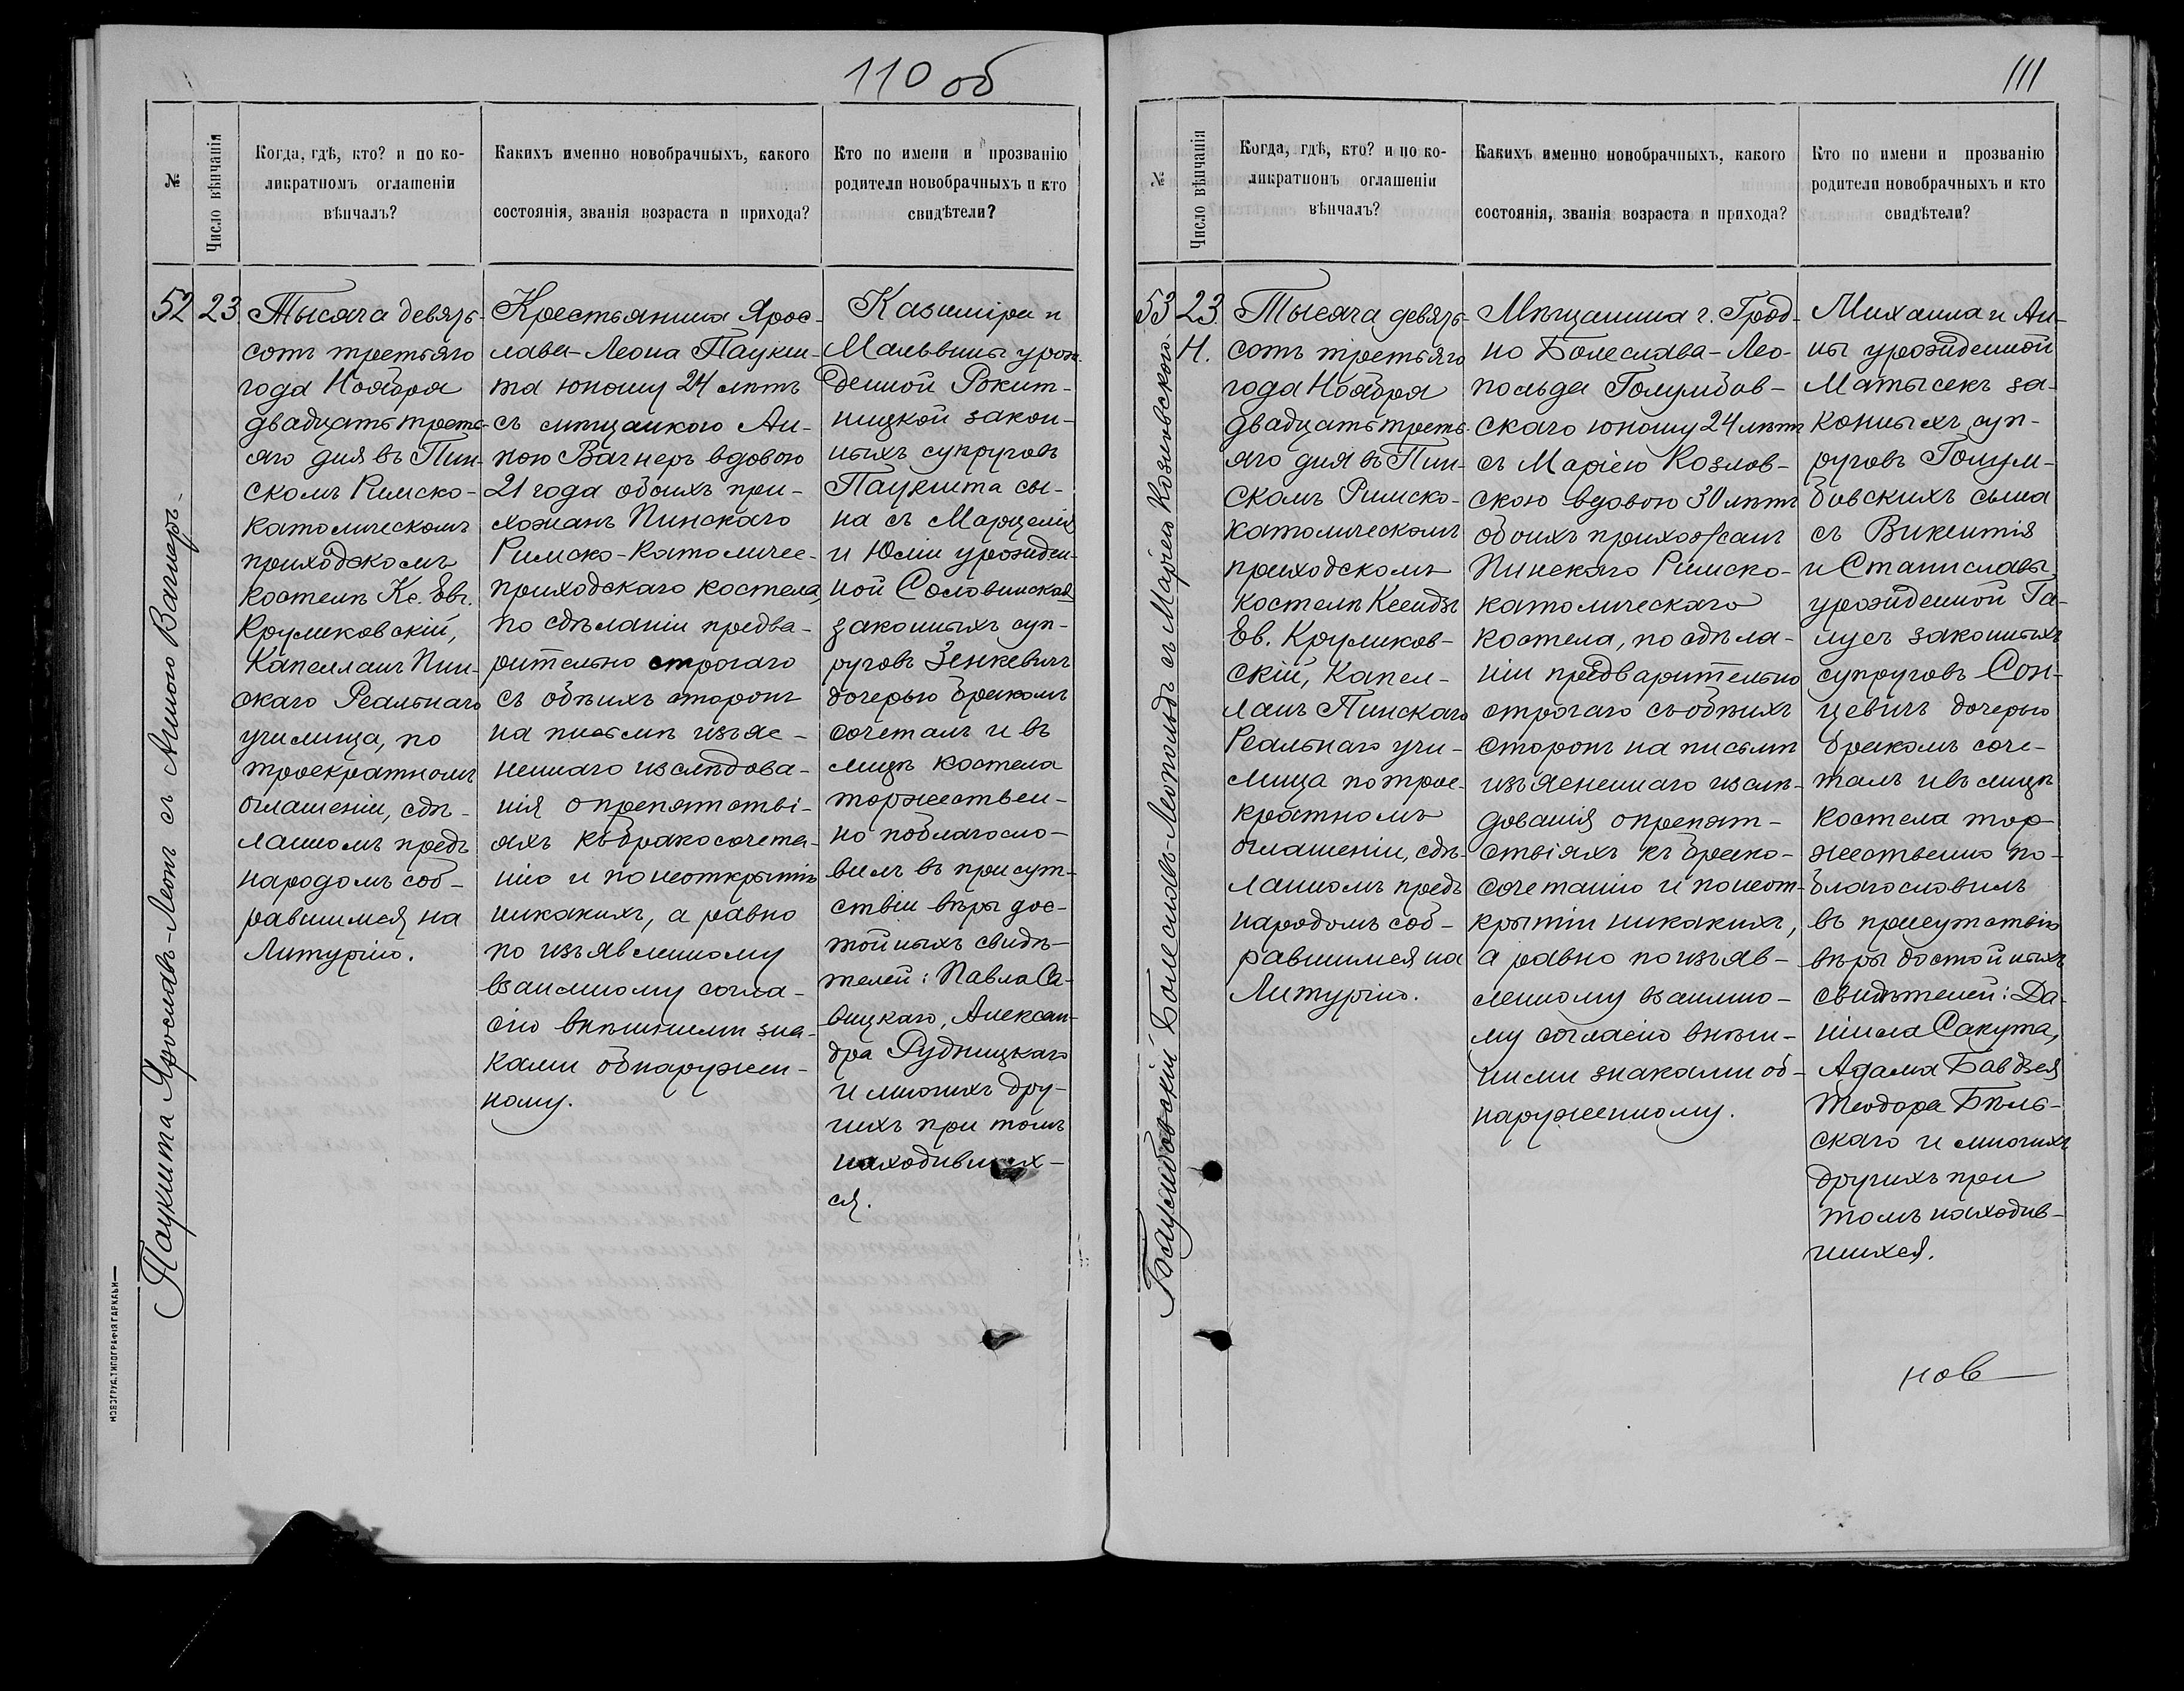 110 об
№
Число вѣнчанія
Когда, гдѣ, кто? и по ко-
ликратномъ оглашеніи
вѣнчалъ?
Какихъ именно новобрачныхъ, какого
состоянія, званія возраста и прихода?
Кто по имени и прозванію
родители новобрачныхъ и кто
свидѣтели?
Паукшта Ярославъ-Леонъ съ Анною Вагнеръ
52
23
Тысяча девять-
сотъ третьяго
года Ноября
двадцать треть-
яго дня въ Пин-
скомъ Римско-
католическомъ
приходскомъ
костелѣ Кс. Евг.
Круликовскій,
Капелланъ Пин-
скаго Реальнаго
училища, по
троекратномъ
оглашеніи, сдѣ-
ланномъ предъ
народомъ соб-
равшимся на
Литургію.
Крестьянина Ярос-
лава-Леона Паукш-
та юношу 24 лѣтъ
съ мѣщанкою Ан-
ною Вагнеръ вдовою
21 года обоихъ при-
хожанъ Пинскаго
Римско-Католичес-
приходскаго костела,
по сдѣланіи предва-
рительно строгаго
съ обѣихъ сторонъ
на письмѣ изъяс-
неннаго изслѣдова-
нія о препятстві-
яхъ къ бракосочета-
нію и по неоткрытіи
никакихъ, а равно
по изъявленному
взаимному согла-
сію внѣшними зна-
ками обнаружен-
ному.
Казиміра и
Мальвины урож-
денной Рокит-
ницкой закон-
ныхъ супруговъ
Паукшта сы-
на съ Марцелія
и Юліи урожден-
ной Соловинской
законныхъ суп-
руговъ Зенкевичъ
дочерью бракомъ
сочеталъ и въ
лицѣ костела
торжествен-
но поблагосло-
вилъ въ присут-
ствіи вѣры дос-
тойныхъ свидѣ-
телей: Павла Са-
вицкаго, Алексан-
дра Рудницкаго
и многихъ дру-
гихъ при томъ
находившихъ-
ся.
НОВОГРУД. ТИПОГРАФІЯ ГАРКАВИ
111
№
Число вѣнчанія
Когда, гдѣ, кто? и по ко-
ликратномъ оглашеніи
вѣнчалъ?
Какихъ именно новобрачныхъ, какого
состоянія, званія возраста и прихода?
Кто по имени и прозванію
родители новобрачныхъ и кто
свидѣтели?
Голумбовскій Болеславъ-Леопольдъ съ Маріею Козловскою
53
23.
Н.
Тысяча девять-
сотъ третьяго
года Ноября
двадцать треть-
яго дня въ Пин-
скомъ Римско-
католическомъ
приходскомъ
костелѣ Ксендзъ
Ев. Круликов-
скій, Капел-
ланъ Пинскаго
Реальнаго учи-
лища по трое-
кратномъ
оглашеніи, сдѣ-
ланномъ предъ
народомъ соб-
равшимся на
Литургію.
Мѣщанина г. Грод-
но Болеслава-Лео-
польда Голумбов-
скаго юношу 24 лѣтъ
съ Маріею Козлов-
скою вдовою 30 лѣтъ
обоихъ прихожанъ
Пинскаго Римско-
католическаго
костела, по сдѣла-
ніи предварительно
строгаго съ обѣихъ
сторонъ на письмѣ
изъясненнаго изслѣ-
дованія о препят-
ствіяхъ къ брако-
сочетанію и по неот-
крытіи никакихъ,
а равно по изъяв-
ленному взаимно-
му согласію внѣш-
ними знаками об-
наруженному.
Михаила и Ан-
ны урожденной
Матысекъ за-
конныхъ суп-
руговъ Голум-
бовскихъ сына
съ Викентія
и Станиславы
урожденной Га-
лусъ законныхъ
супруговъ Сон-
цевичъ дочерью
бракомъ соче-
талъ и въ лицѣ
костела тор-
жественно по-
благословилъ
въ присутствіи
вѣры достойныхъ
свидѣтелей: Да-
ніила Сакута,
Адама Бавдзея
Теодора Бѣль-
скаго и многихъ
другихъ при
томъ находив-
шихся.
нов